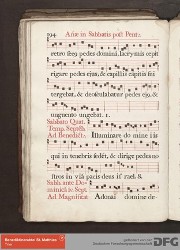 194 Añæ in Sabbatis post Pent:
retro secus pedes domini, lacrymis cœpit
rigare pedes ejus, & capillis capitis sui
tergebat, & osculabatur pedes ejus, &
unguento ungebat. 1.
Sabbato Quat.
Temp. Septẽb.
Ad Benedict: Illuminare domine iis
qui in tenebris sedẽt, & dirige pedes no
stros in viã pacis deus isrl. 8.
Sabb. ante Do
minicã Sept.
Ad Magnificat Adonai domine de
Benediktinerabtei St. Matthias